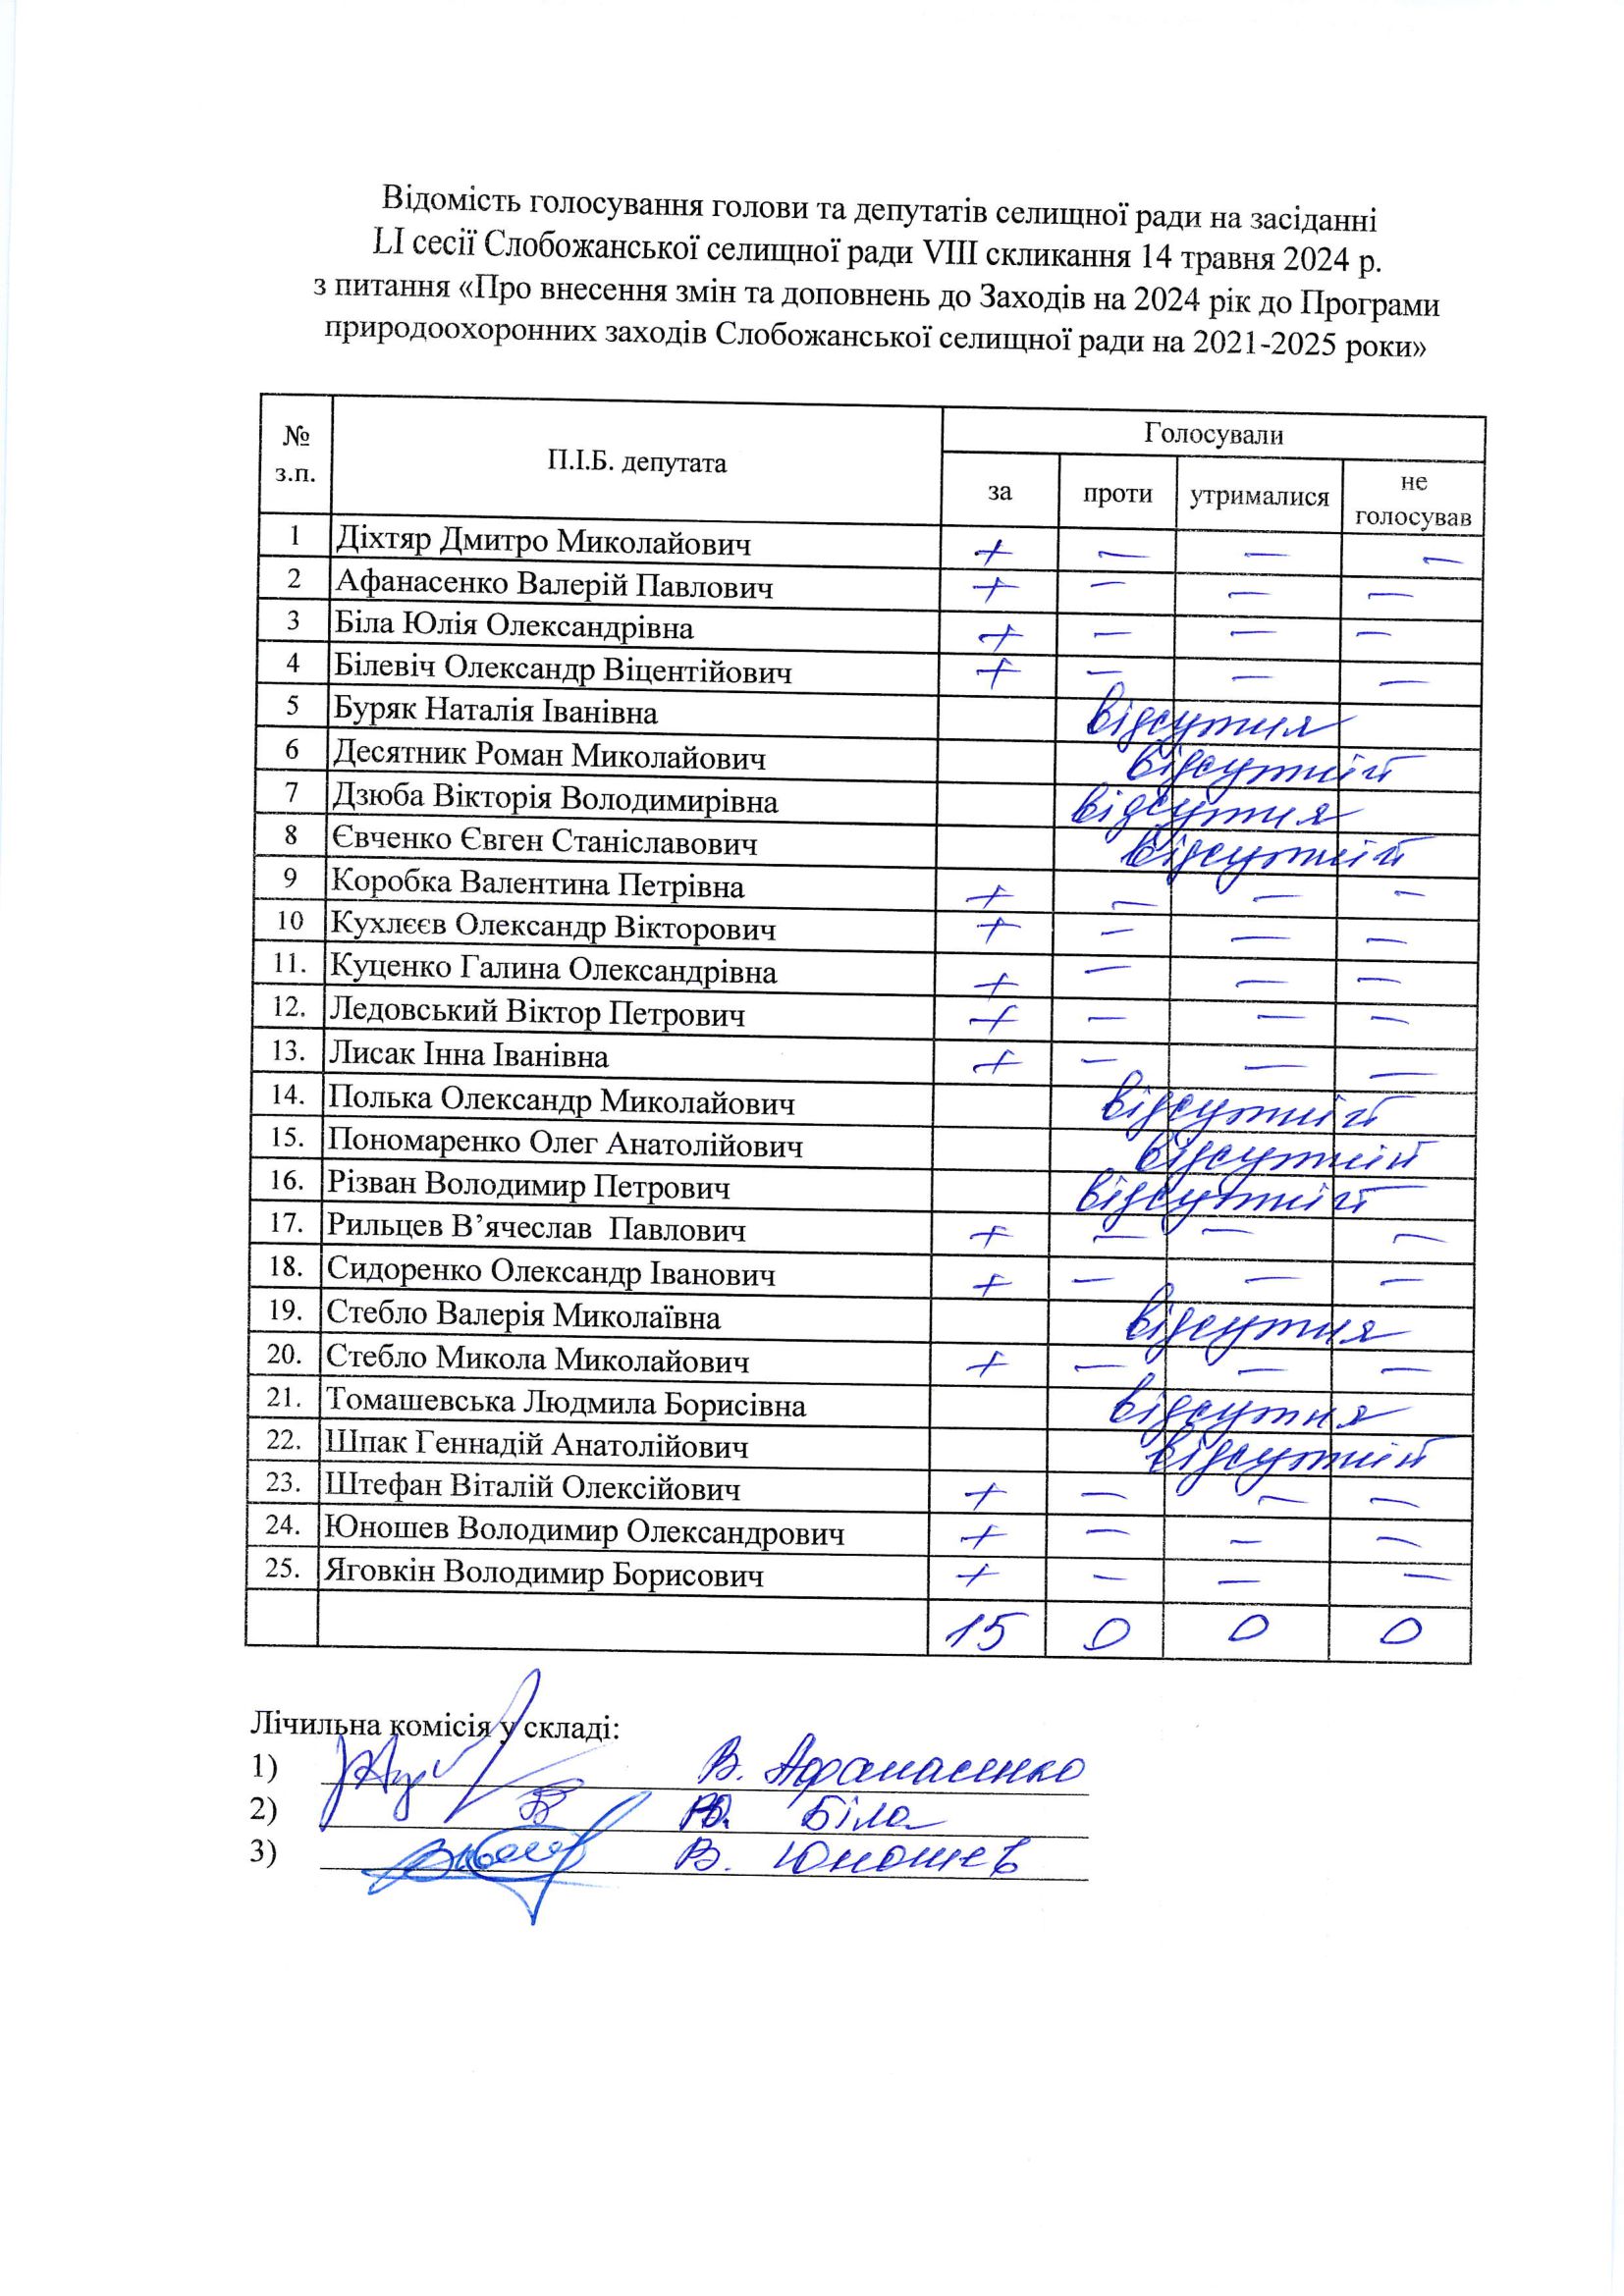 Відомість голосування голови та депутатів селищної ради на засіданні
LI сесії Слобожанської селищної ради VIII скликання 14 травня 2024 р.
з питання «Про внесення змін та доповнень до Заходів на 2024 рік до Програми
природоохоронних заходів Слобожанської селищної ради на 2021-2025 роки»
№ з.п. П.І.Б. депутата Голосували
за проти утрималися не голосував
1 Діхтяр Дмитро Миколайович + — — —
2 Афанасенко Валерій Павлович + — — —
3 Біла Юлія Олександрівна + — — —
4 Білевіч Олександр Віцентійович + — — —
5 Буряк Наталія Іванівна відсутня
6 Десятник Роман Миколайович відсутній
7 Дзюба Вікторія Володимирівна відсутня
8 Євченко Євген Станіславович відсутній
9 Коробка Валентина Петрівна + — — —
10 Кухлєєв Олександр Вікторович + — — —
11. Куценко Галина Олександрівна + — — —
12. Ледовський Віктор Петрович + — — —
13. Лисак Інна Іванівна + — — —
14. Полька Олександр Миколайович відсутній
15. Пономаренко Олег Анатолійович відсутній
16. Різван Володимир Петрович відсутній
17. Рильцев В’ячеслав Павлович + — — —
18. Сидоренко Олександр Іванович + — — —
19. Стебло Валерія Миколаївна відсутня
20. Стебло Микола Миколайович + — — —
21. Томашевська Людмила Борисівна відсутня
22. Шпак Геннадій Анатолійович відсутній
23. Штефан Віталій Олексійович + — — —
24. Юношев Володимир Олександрович + — — —
25. Яговкін Володимир Борисович + — — —
15 0 0 0
Лічильна комісія у складі:
1) В. Афанасенко
2) Ю. Біла
3) В. Юношев